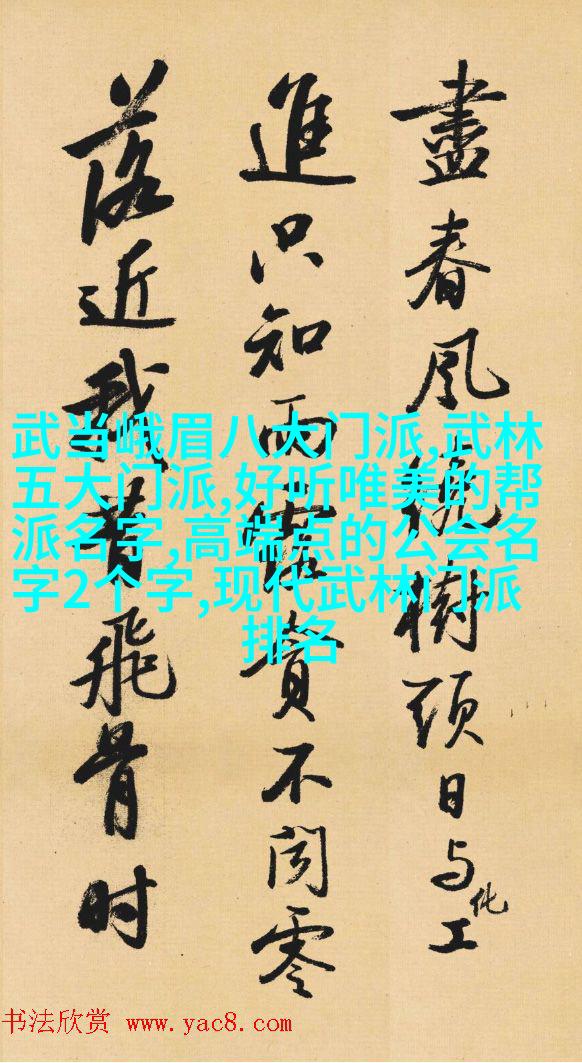 盡春風繞樹頭日与化工
進只知雨露貪不聞零
落近我昔飛骨时
武当峨眉八大门派,武林
五大门派,好听唯美的帮
派名字,高端点的公会名
字2个字,现代武林门派
排名
书法欣赏 www.yac8.com